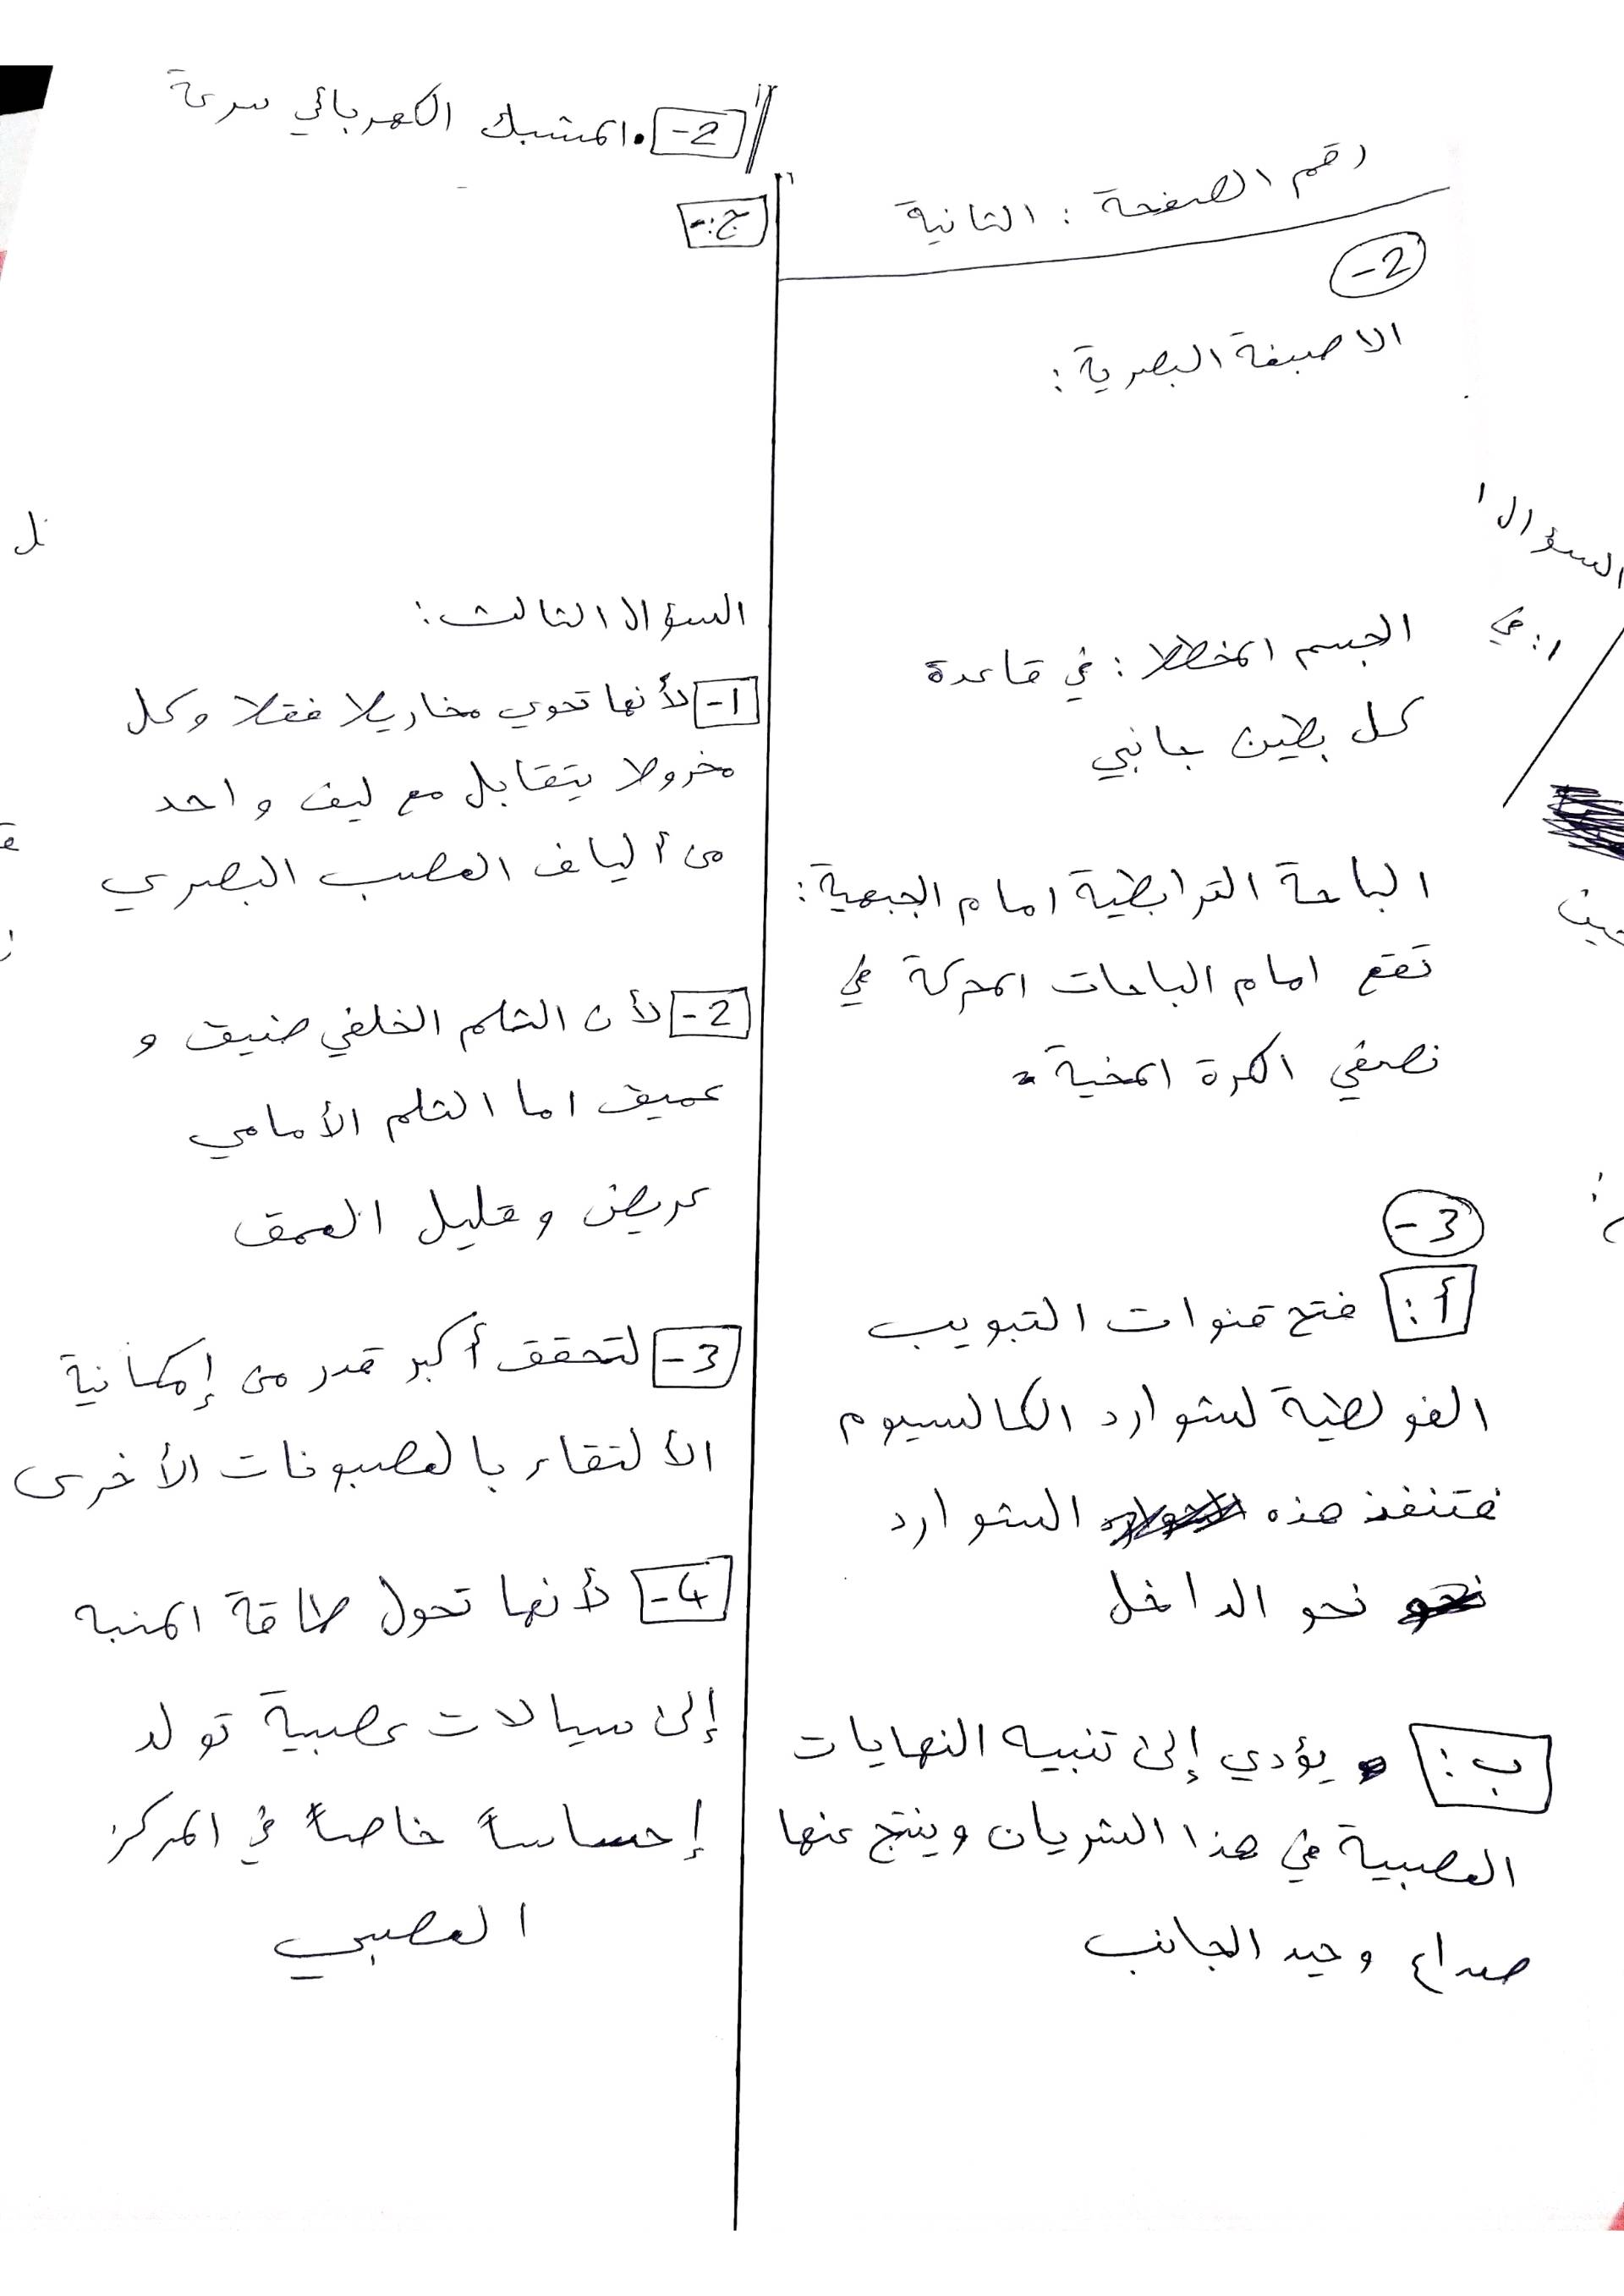 رقم الصفحة : الثانية
2-
الاصبغة البصرية :
الجسم المخطط : في قاعدة
كل بطين جانبي
الباحة الترابطية امام الجبهية :
تقع امام الباحات المحركة في
نصفي الكرة المخية .
3-
أ : فتح قنوات التبويب
الفولطية لشوارد الكالسيوم
فتنفذ هذه الشوارد
نحو الداخل
ب : يؤدي إلى تنبيه النهايات
العصبية في هذا الشريان وينتج عنها
صداع وحيد الجانب
2- المشبك الكهربائي سرعة
ج :-
السؤال الثالث :
1- لأنها تحوي مخاريط فقط وكل
مخروط يتقابل مع ليف واحد
من ألياف العصب البصري
2- لأن الثلم الخلفي ضيق و
عميق اما الثلم الأمامي
عريض وقليل العمق
3- لتحقق أكبر قدر من إمكانية
الألتقاء بالعصبونات الأخرى
4- لأنها تحول طاقة المنبه
إلى سيالات عصبية تولد
إحساساً خاصاً في المركز
العصبي
السؤال